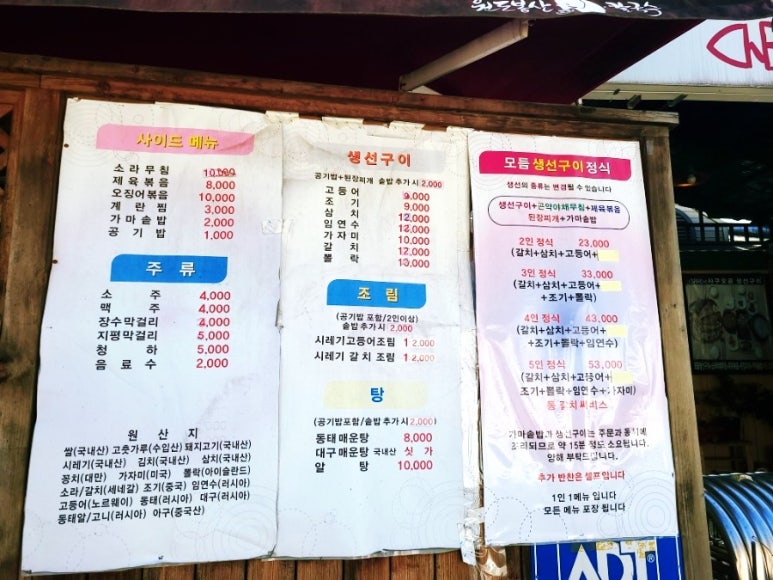 사이드 메뉴
소라무침 10,000
제육볶음 8,000
오징어볶음 10,000
계란찜 3,000
가마솥밥 2,000
공기밥 1,000
주류
소주 4,000
맥주 4,000
장수막걸리 4,000
지평막걸리 5,000
청하 5,000
음료수 2,000
원산지
쌀(국내산) 고춧가루(수입산) 돼지고기(국내산)
시레기(국내산) 김치(국내산) 삼치(국내산)
꽁치(대만) 가자미(미국) 뽈락(아이슬란드)
소라/갈치(세네갈) 조기(중국) 임연수(러시아)
고등어(노르웨이) 동태(러시아) 대구(러시아)
동태알/고니(러시아) 아구(중국산)
생선구이
공기밥+된장찌개 솥밥 추가시 2,000
고등어 9,000
조기 9,000
삼치 12,000
임연수 12,000
가자미 10,000
갈치 12,000
뽈락 13,000
조림
(공기밥 포함/2인이상)
솥밥 추가시 2,000
시레기고등어조림 12,000
시레기갈치조림 12,000
탕
(공기밥포함/솥밥 추가시 2,000)
동태매운탕 8,000
대구매운탕 국내산 싯가
알탕 10,000
모듬 생선구이 정식
생선의 종류는 변경될 수 있습니다
생선구이+곤약야채무침+제육볶음
된장찌개+가마솥밥
2인 정식 23,000
(갈치+삼치+고등어+
3인 정식 33,000
(갈치+삼치+고등어+
+조기+뽈락)
4인 정식 43,000
(갈치+삼치+고등어+
+조기+뽈락+임연수)
5인 정식 53,000
(갈치+삼치+고등어+
조기+뽈락+임연수+가자미)
통갈치써비스
가마솥밥과 생선구이는 주문과 동시에
조리되므로 약 15분 정도 소요됩니다.
양해 부탁드립니다.
추가 반찬은 셀프입니다
1인 1메뉴 입니다
모든 메뉴 포장 됩니다